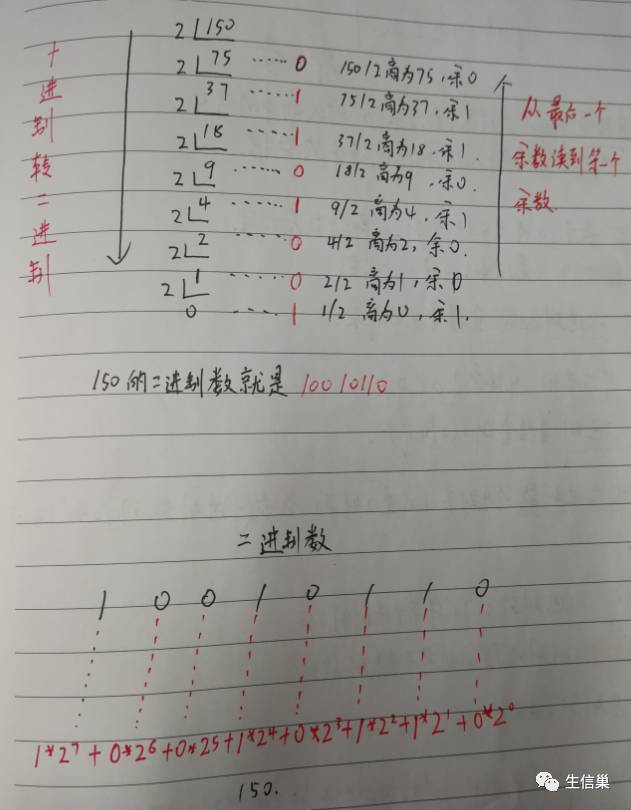 十进制转二进制
2 150
2 75 ...... 0 150/2商为75,余0
2 37 ...... 1 75/2商为37,余1
2 18 ...... 1 37/2商为18.余1.
2 9 ...... 0 18/2商为9.余0.
2 4 ...... 1 9/2商为4,余1
2 2 ...... 0 4/2商为2,余0.
2 1 ...... 0 2/2商为1,余0
0 .... 1 1/2商为0,余1.
从最后一个
余数读到第一个
余数.
150的二进制数就是10010110
二进制数
1 0 0 1 0 1 1 0
1*2^7+0*2^6+0*2^5+1*2^4+0*2^3+1*2^2+1*2^1+0*2^0
150.
生信巢